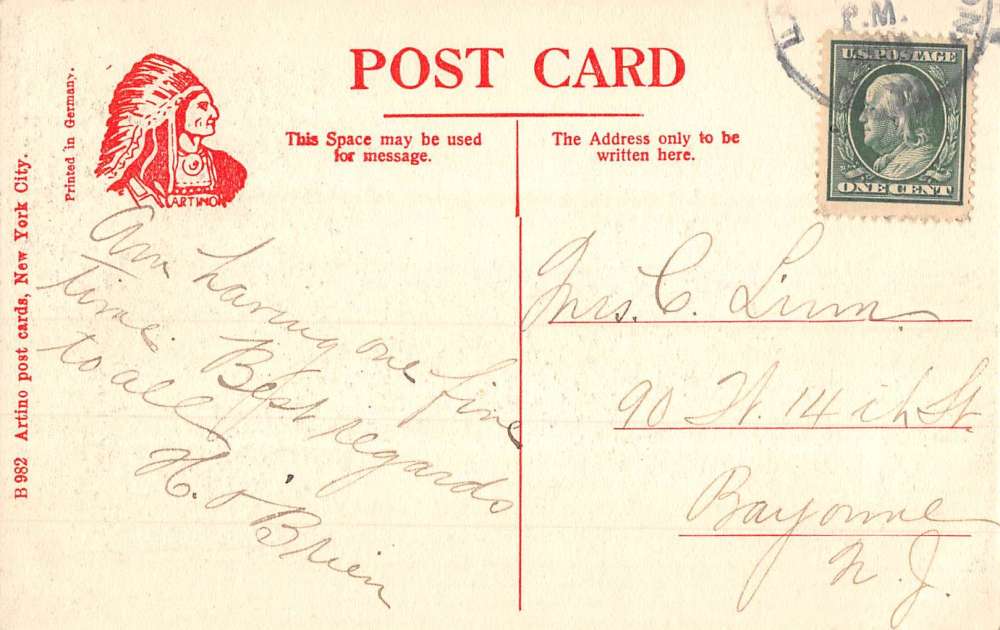 POST CARD
This Space may be used
for message.
The Address only to be
written here.
Printed in Germany.
B 982 Artino post cards, New York City.
ARTINO
P.M.
U.S. POSTAGE
ONE CENT
Am having one fine
time. Best regards
to all
H. O'Brien
Mrs. C. Linn
90 W. 14th St.
Bayonne
N. J.